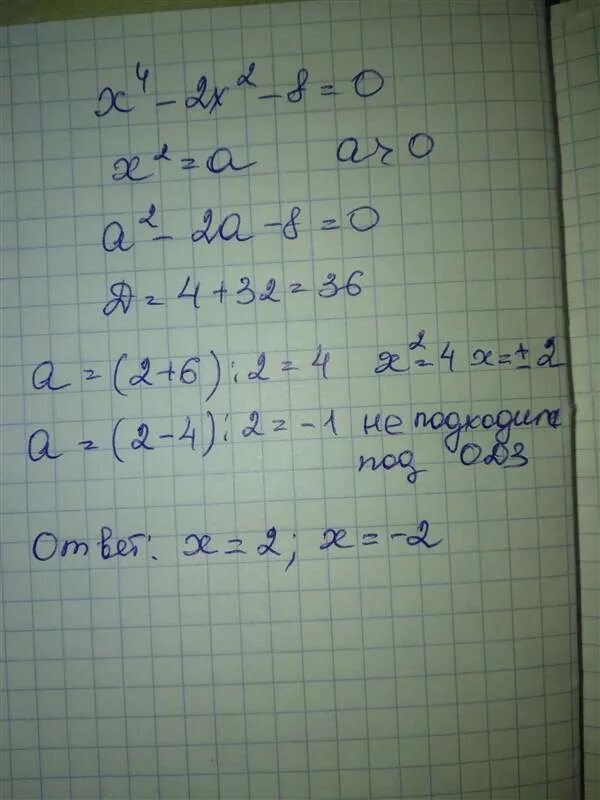 x⁴ - 2x² - 8 = 0
x² = a a > 0
a² - 2a - 8 = 0
D = 4 + 32 = 36
a = (2+6) : 2 = 4 x² = 4 x = ± 2
a = (2-4) : 2 = -1 не подходит
под ОДЗ
Ответ: x = 2; x = -2